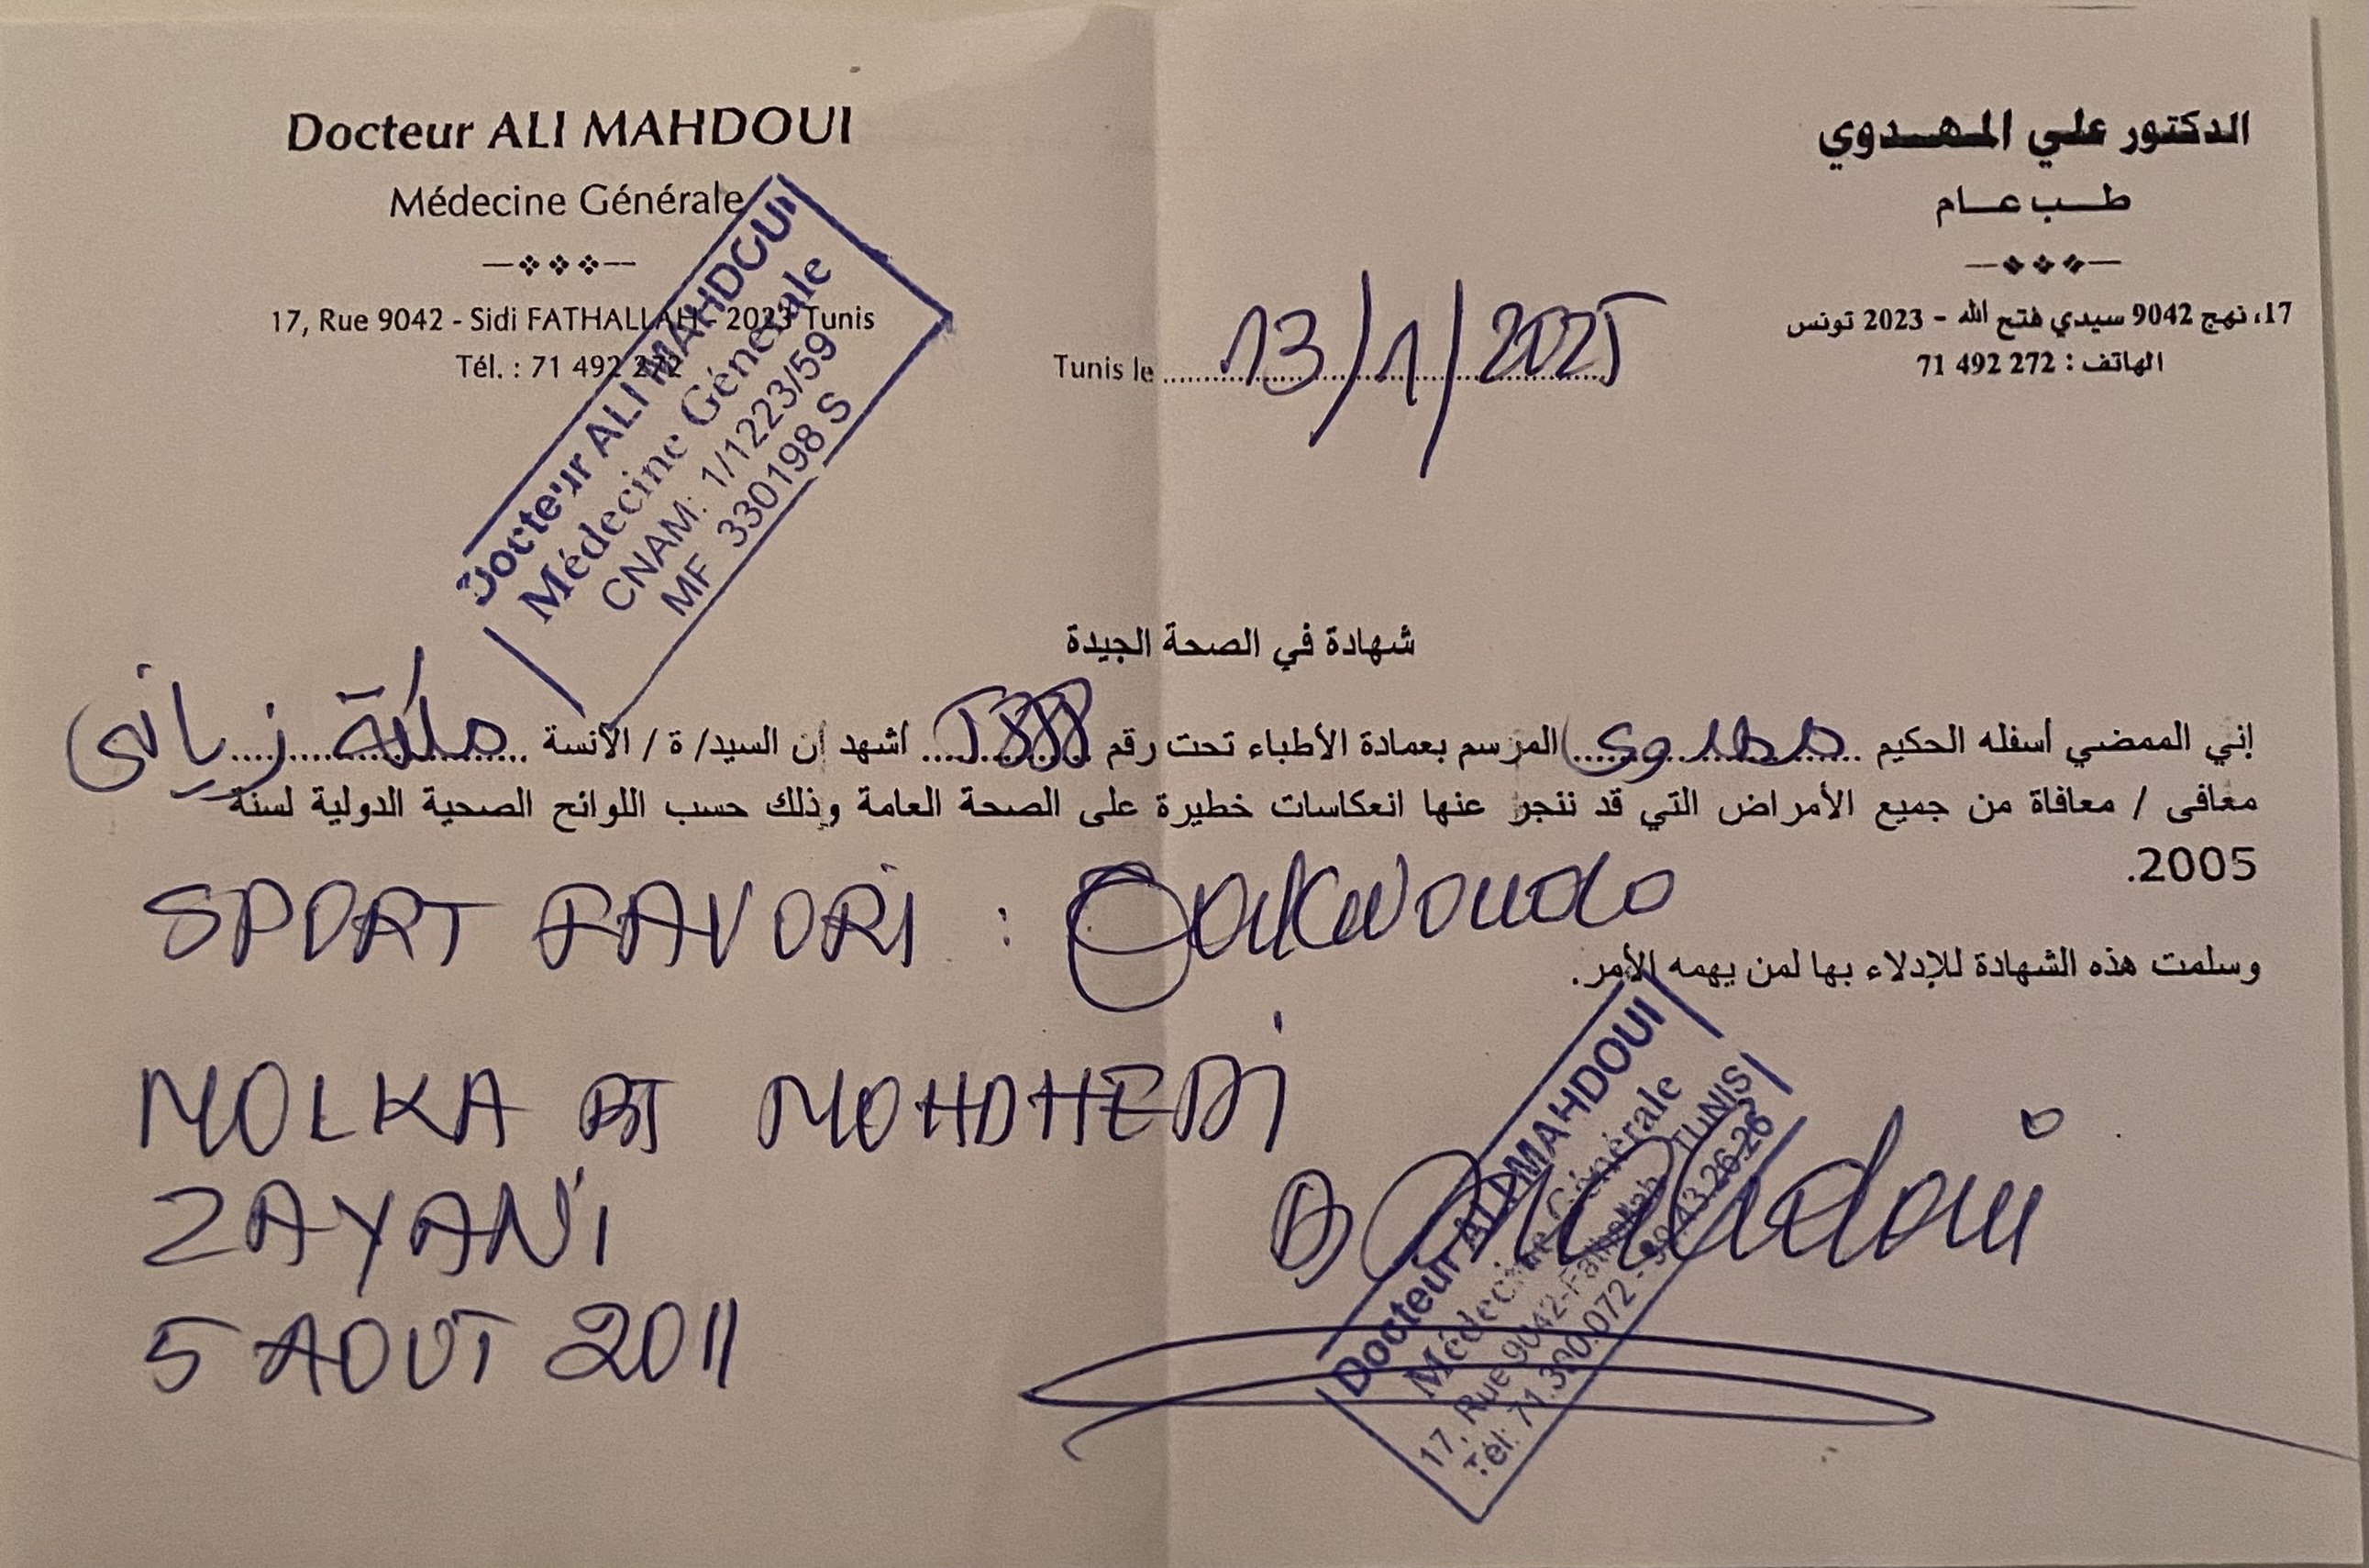 Docteur ALI MAHDOUI
Médecine Générale
17, Rue 9042 - Sidi FATHALLAH - 2023 Tunis
Tél. : 71 492 272
الدكتور علي المهدوي
طب عام
17، نهج 9042 سيدي فتح الله - 2023 تونس
الهاتف : 272 492 71
Docteur ALI MAHDOUI
Médecine Générale
CNAM: 1/1223/59
MF 330198 S
Tunis le 13/1/2025
شهادة في الصحة الجيدة
إني الممضي أسفله الحكيم مهدوي المرسم بعمادة الأطباء تحت رقم أشهد أن السيد/ ة / الآنسة ملكة زياني
معافى / معافاة من جميع الأمراض التي قد تنجر عنها انعكاسات خطيرة على الصحة العامة وذلك حسب اللوائح الصحية الدولية لسنة
2005.
SPORT FAVORI :
وسلمت هذه الشهادة للإدلاء بها لمن يهمه الأمر.
MOLKA BT MOHDHEDI
ZAYANI
5 AOUT 2011
Dr Mahdoui
Docteur ALI MAHDOUI
Médecine Générale
17, Rue 9042-Fathallah TUNIS
Tél: 71.390.072 - 98.43.26.26